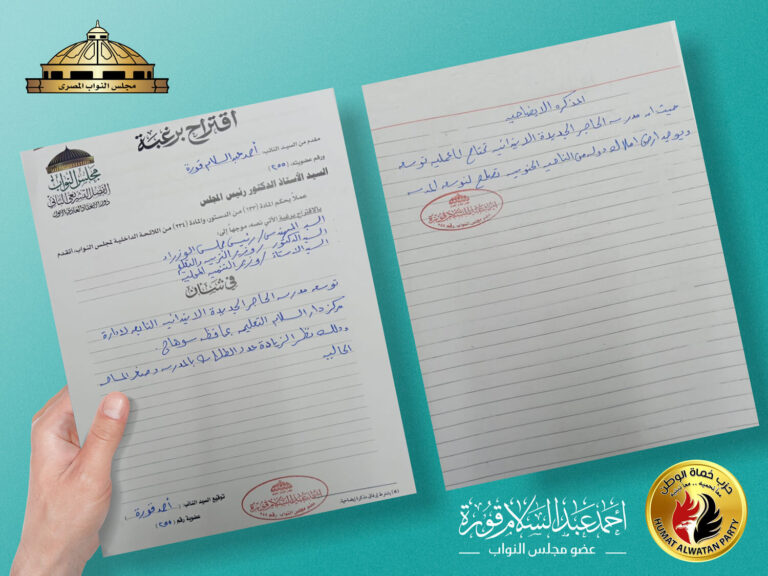 مجلس النواب المصرى
اقتراح برغبة
مجلس النواب
الفصل التشريعي الثاني
مقدم من السيد النائب: أحمد عبد السلام قورة
ورقم عضويته: (٢٥٥)
السيد الأستاذ الدكتور رئيس المجلس
عملاً بحكم المادة (١٣٣) من الدستور والمادة (٢٣٤) من اللائحة الداخلية لمجلس النواب، أتقدم
بالاقتراح برغبة الآتي نصه، موجهاً إلى:
السيد المهندس / رئيس مجلس الوزراء
السيد الدكتور / وزير التربية والتعليم
السيد الاستاذ / وزير التنمية المحلية
في شأن
توسعه مدرسه الحاجر الجديدة الابتدائيه التابعه لادارة
مركز دار السلام التعليمه بمحافظه سوهاج
وذلك نظرا لزيادة عدد الطلاب بالمدرسه وصغر المساحه
الحاليه
توقيع السيد النائب: (أحمد قورة)
عضوية رقم (٢٥٥)
المذكره الايضاحيه
حيث ان مدرسه الحاجر الجديدة الابتدائيه تحتاج لعمليه توسعه
ويوجد ارض املاك دوله من الناحيه الجنوبيه تصلح لتوسعه المدرسه
احمد عبد السلام قورة
عضو مجلس النواب
حزب حماة الوطن
HUMAT ALWATAN PARTY